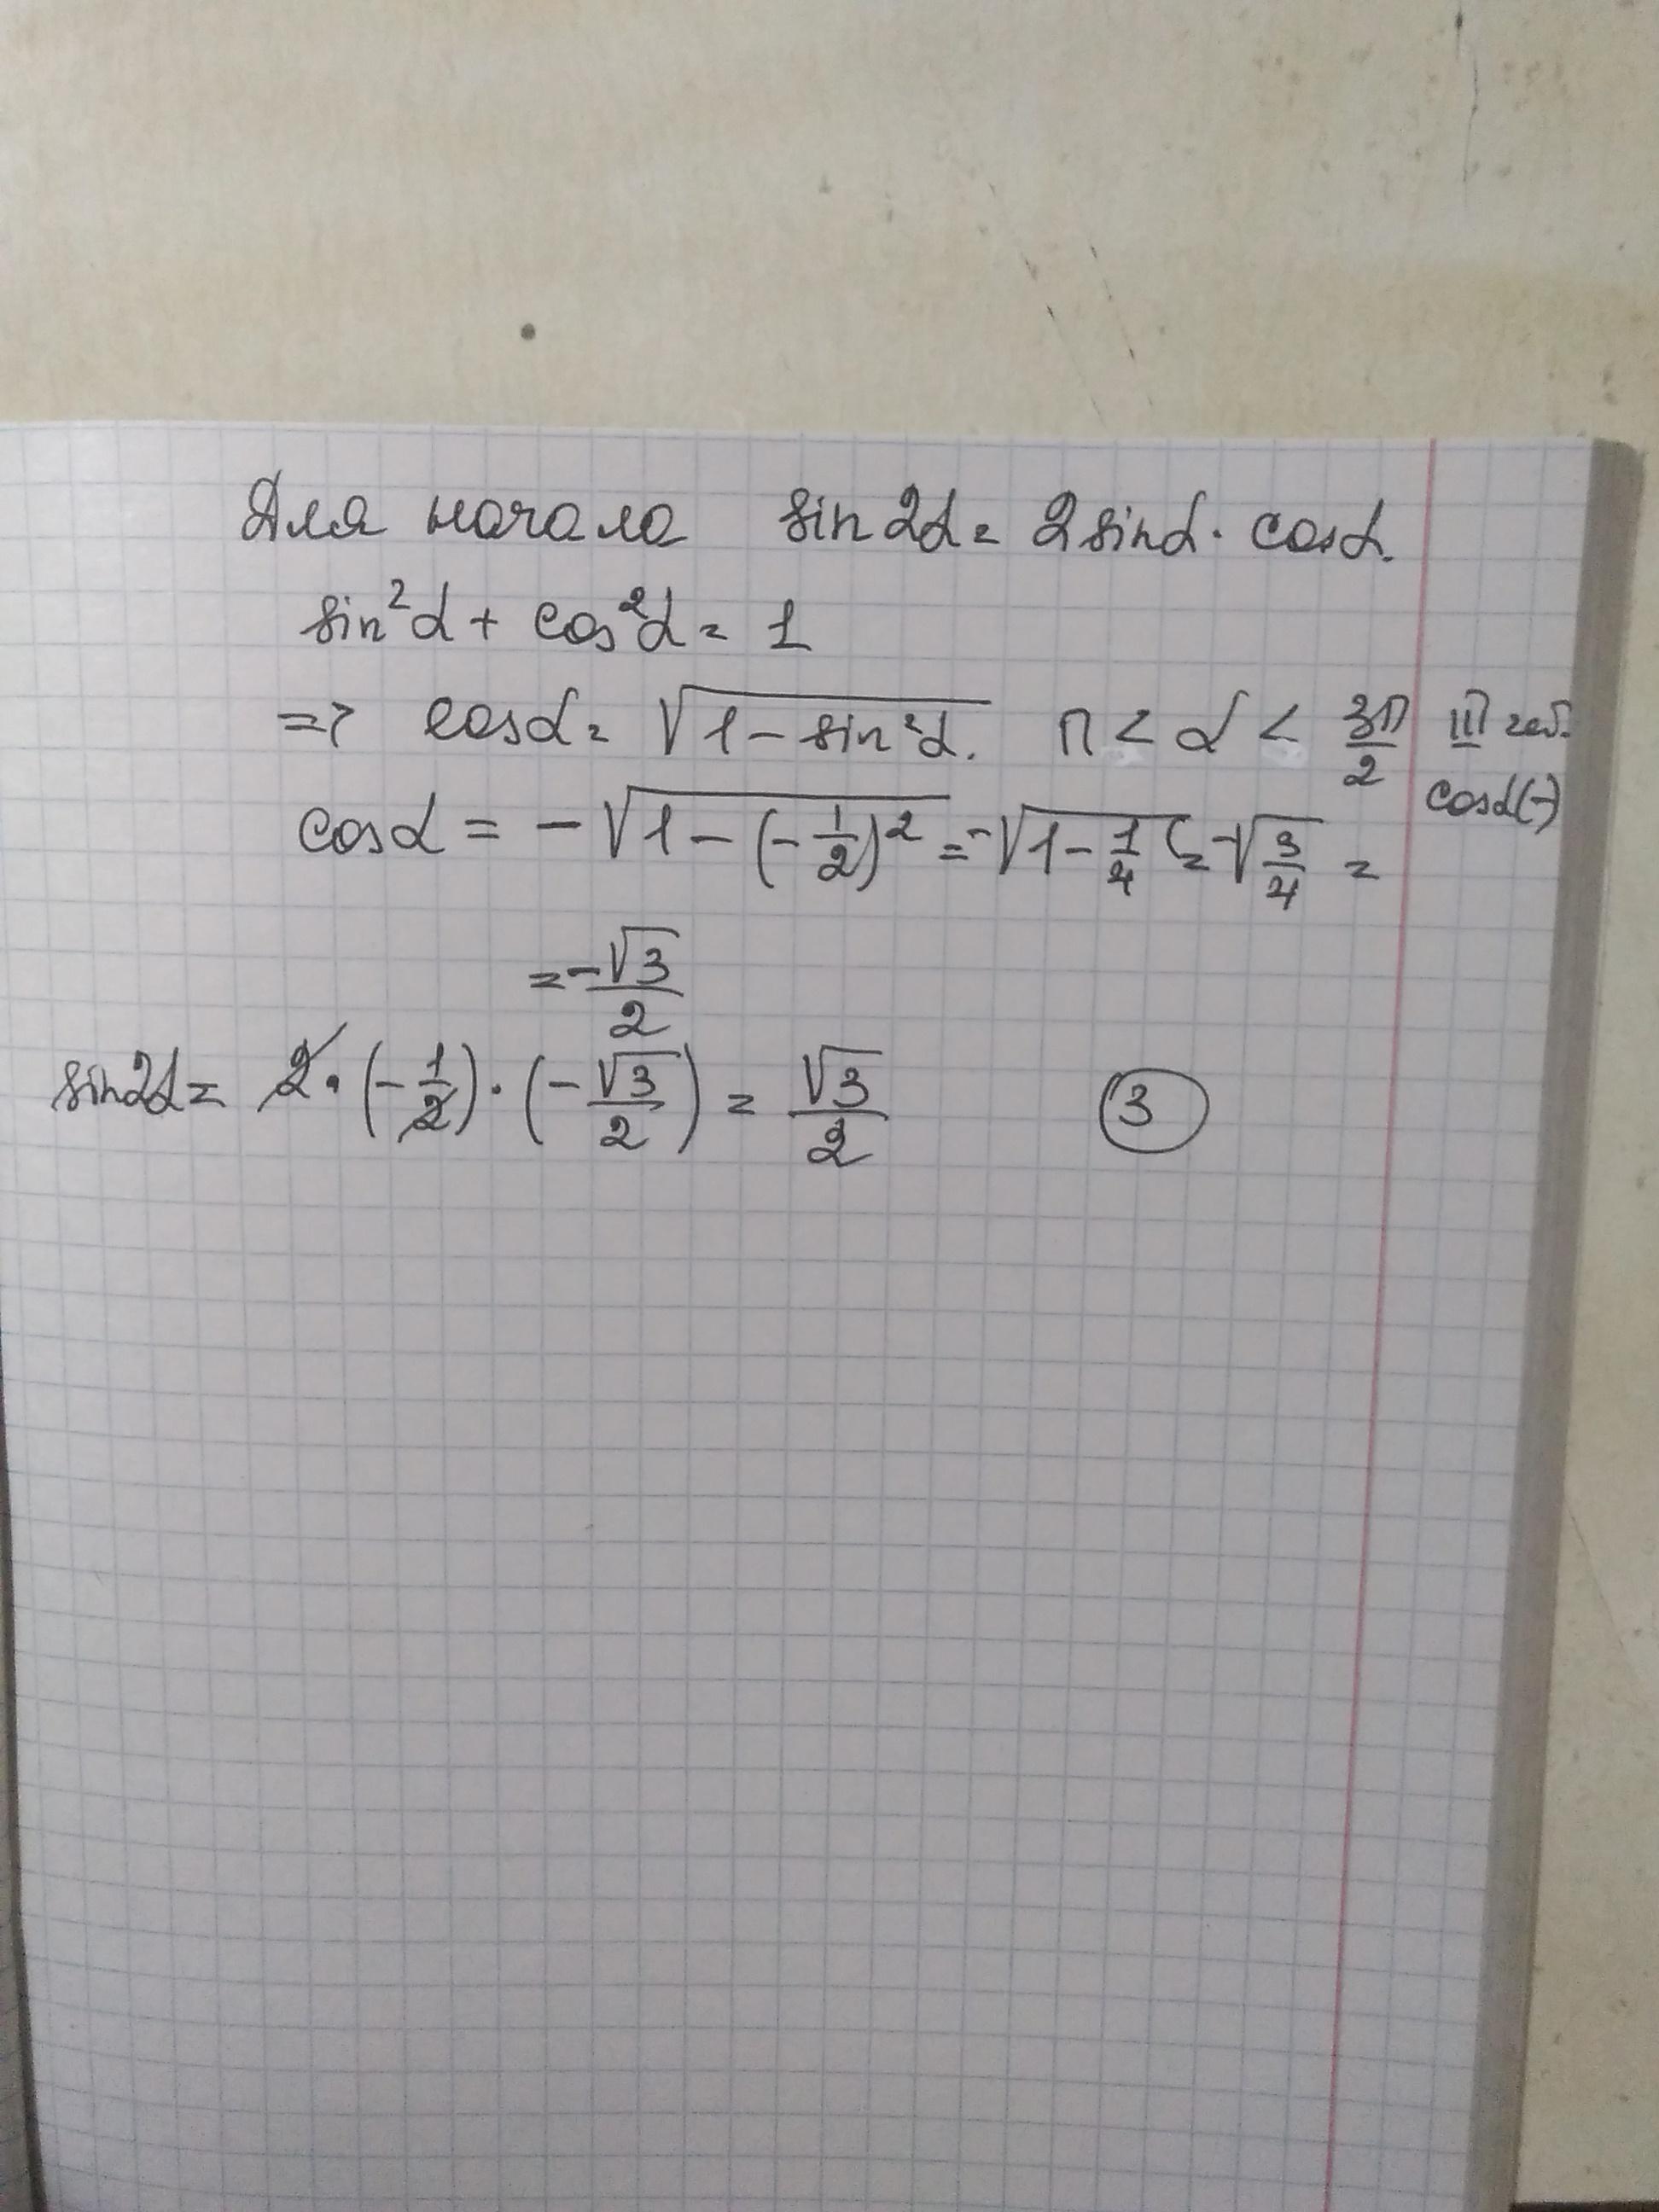 Для начала sin2α = 2sinα · cosα.
sin²α + cos²α = 1
=> cosα = √(1 - sin²α). π < α < 3π/2 III чет.
cosα(-)
cosα = -√(1 - (-1/2)²) = -√(1 - 1/4) = -√(3/4) =
= -√3/2
sin2α = 2 · (-1/2) · (-√3/2) = √3/2 3